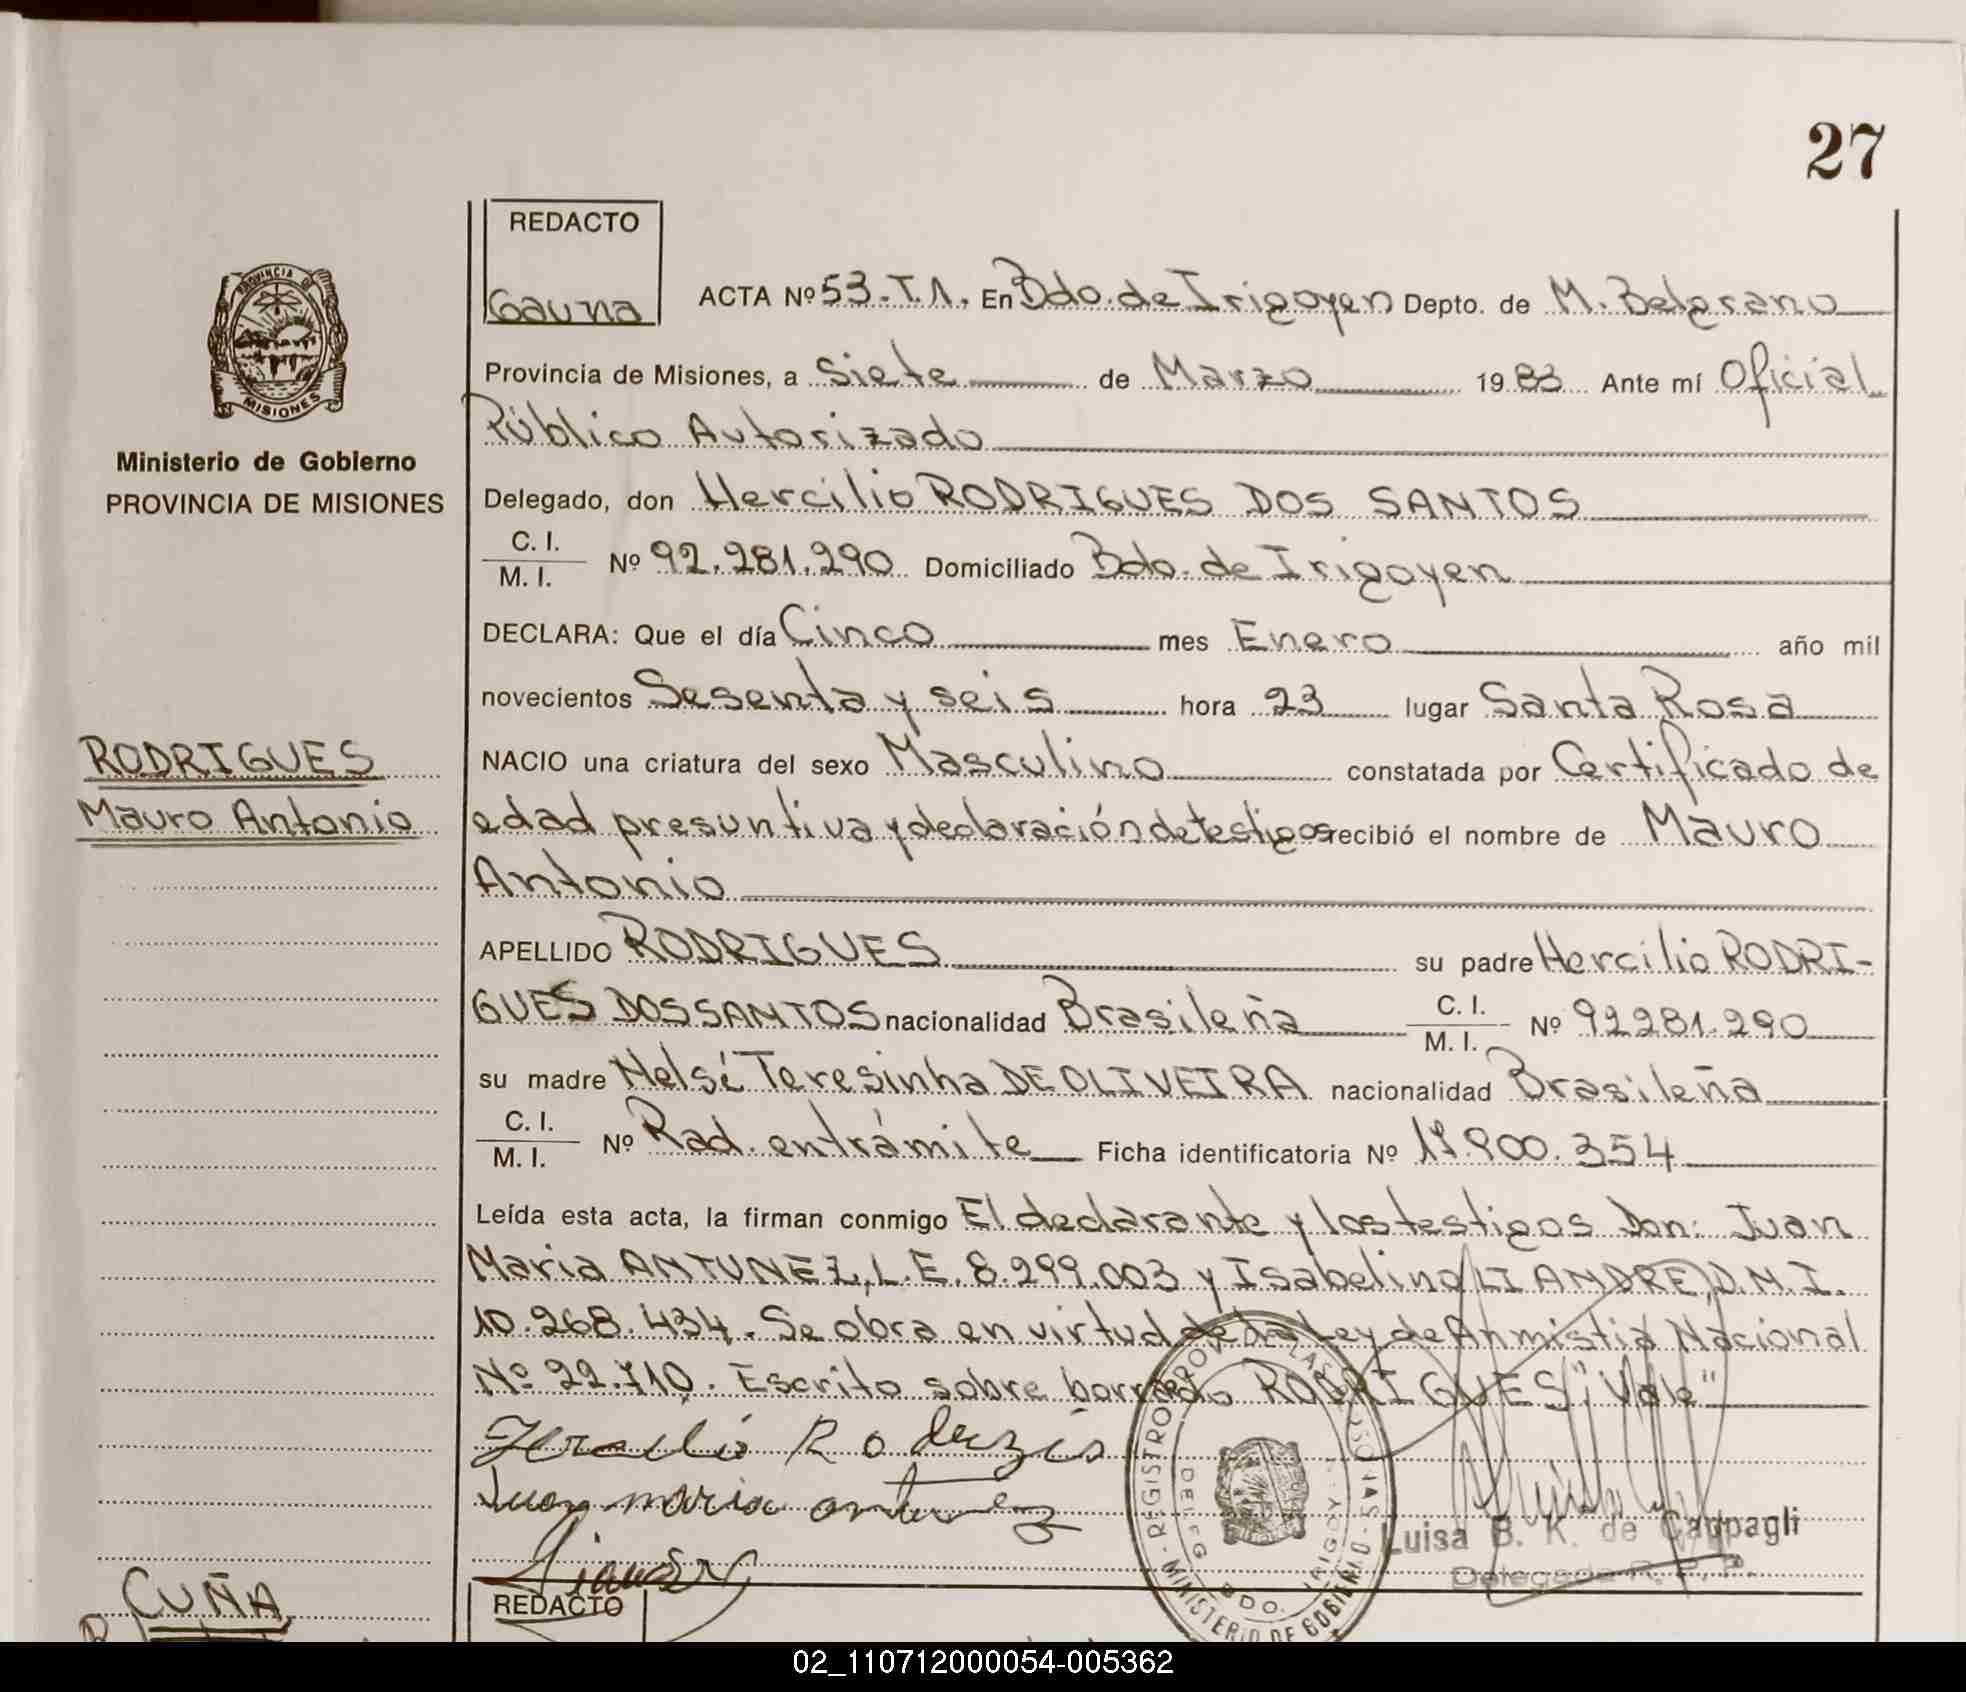 27
REDACTO
Gauna
ACTA Nº 53-T.1. En Bdo. de Irigoyen Depto. de M. Belgrano
PROVINCIA DE
MISIONES
Ministerio de Gobierno
PROVINCIA DE MISIONES
Provincia de Misiones, a Siete de Marzo 1983 Ante mí Oficial
Público Autorizado
Delegado, don Hercilio RODRIGUES DOS SANTOS
C. I.
M. I. Nº 92.281.290 Domiciliado Bdo. de Irigoyen
DECLARA: Que el día Cinco mes Enero año mil
novecientos Sesenta y seis hora 23 lugar Santa Rosa
RODRIGUES
Mauro Antonio
NACIO una criatura del sexo Masculino constatada por Certificado de
edad presuntiva y declaración de testigos recibió el nombre de Mauro
Antonio
APELLIDO RODRIGUES su padre Hercilio RODRI-
GUES DOS SANTOS nacionalidad Brasileña C. I.
M. I. Nº 92281.290
su madre Nelsi Teresinha DE OLIVEIRA nacionalidad Brasileña
C. I.
M. I. Nº Rad. en trámite Ficha identificatoria Nº .900.354
Leída esta acta, la firman conmigo El declarante y los testigos Don: Juan
Maria ANTUNEZ, L.E. 8.299.003 y Isabelino LI ANDRE, D.N.I.
10.268.434. Se obra en virtud de la Ley de Anmistia Nacional
Nº 22.710. Escrito sobre borrado RODRIGUES", Vale"
Juan maria antunez
REGISTRO PROV. DE LAS PERSONAS - MINISTERIO DE GOBIERNO
DELEG. BDO. IRIGOYEN
Luisa B. K. de Campagli
Delegada R. P. P.
CUÑA
REDACTO
02_110712000054-005362